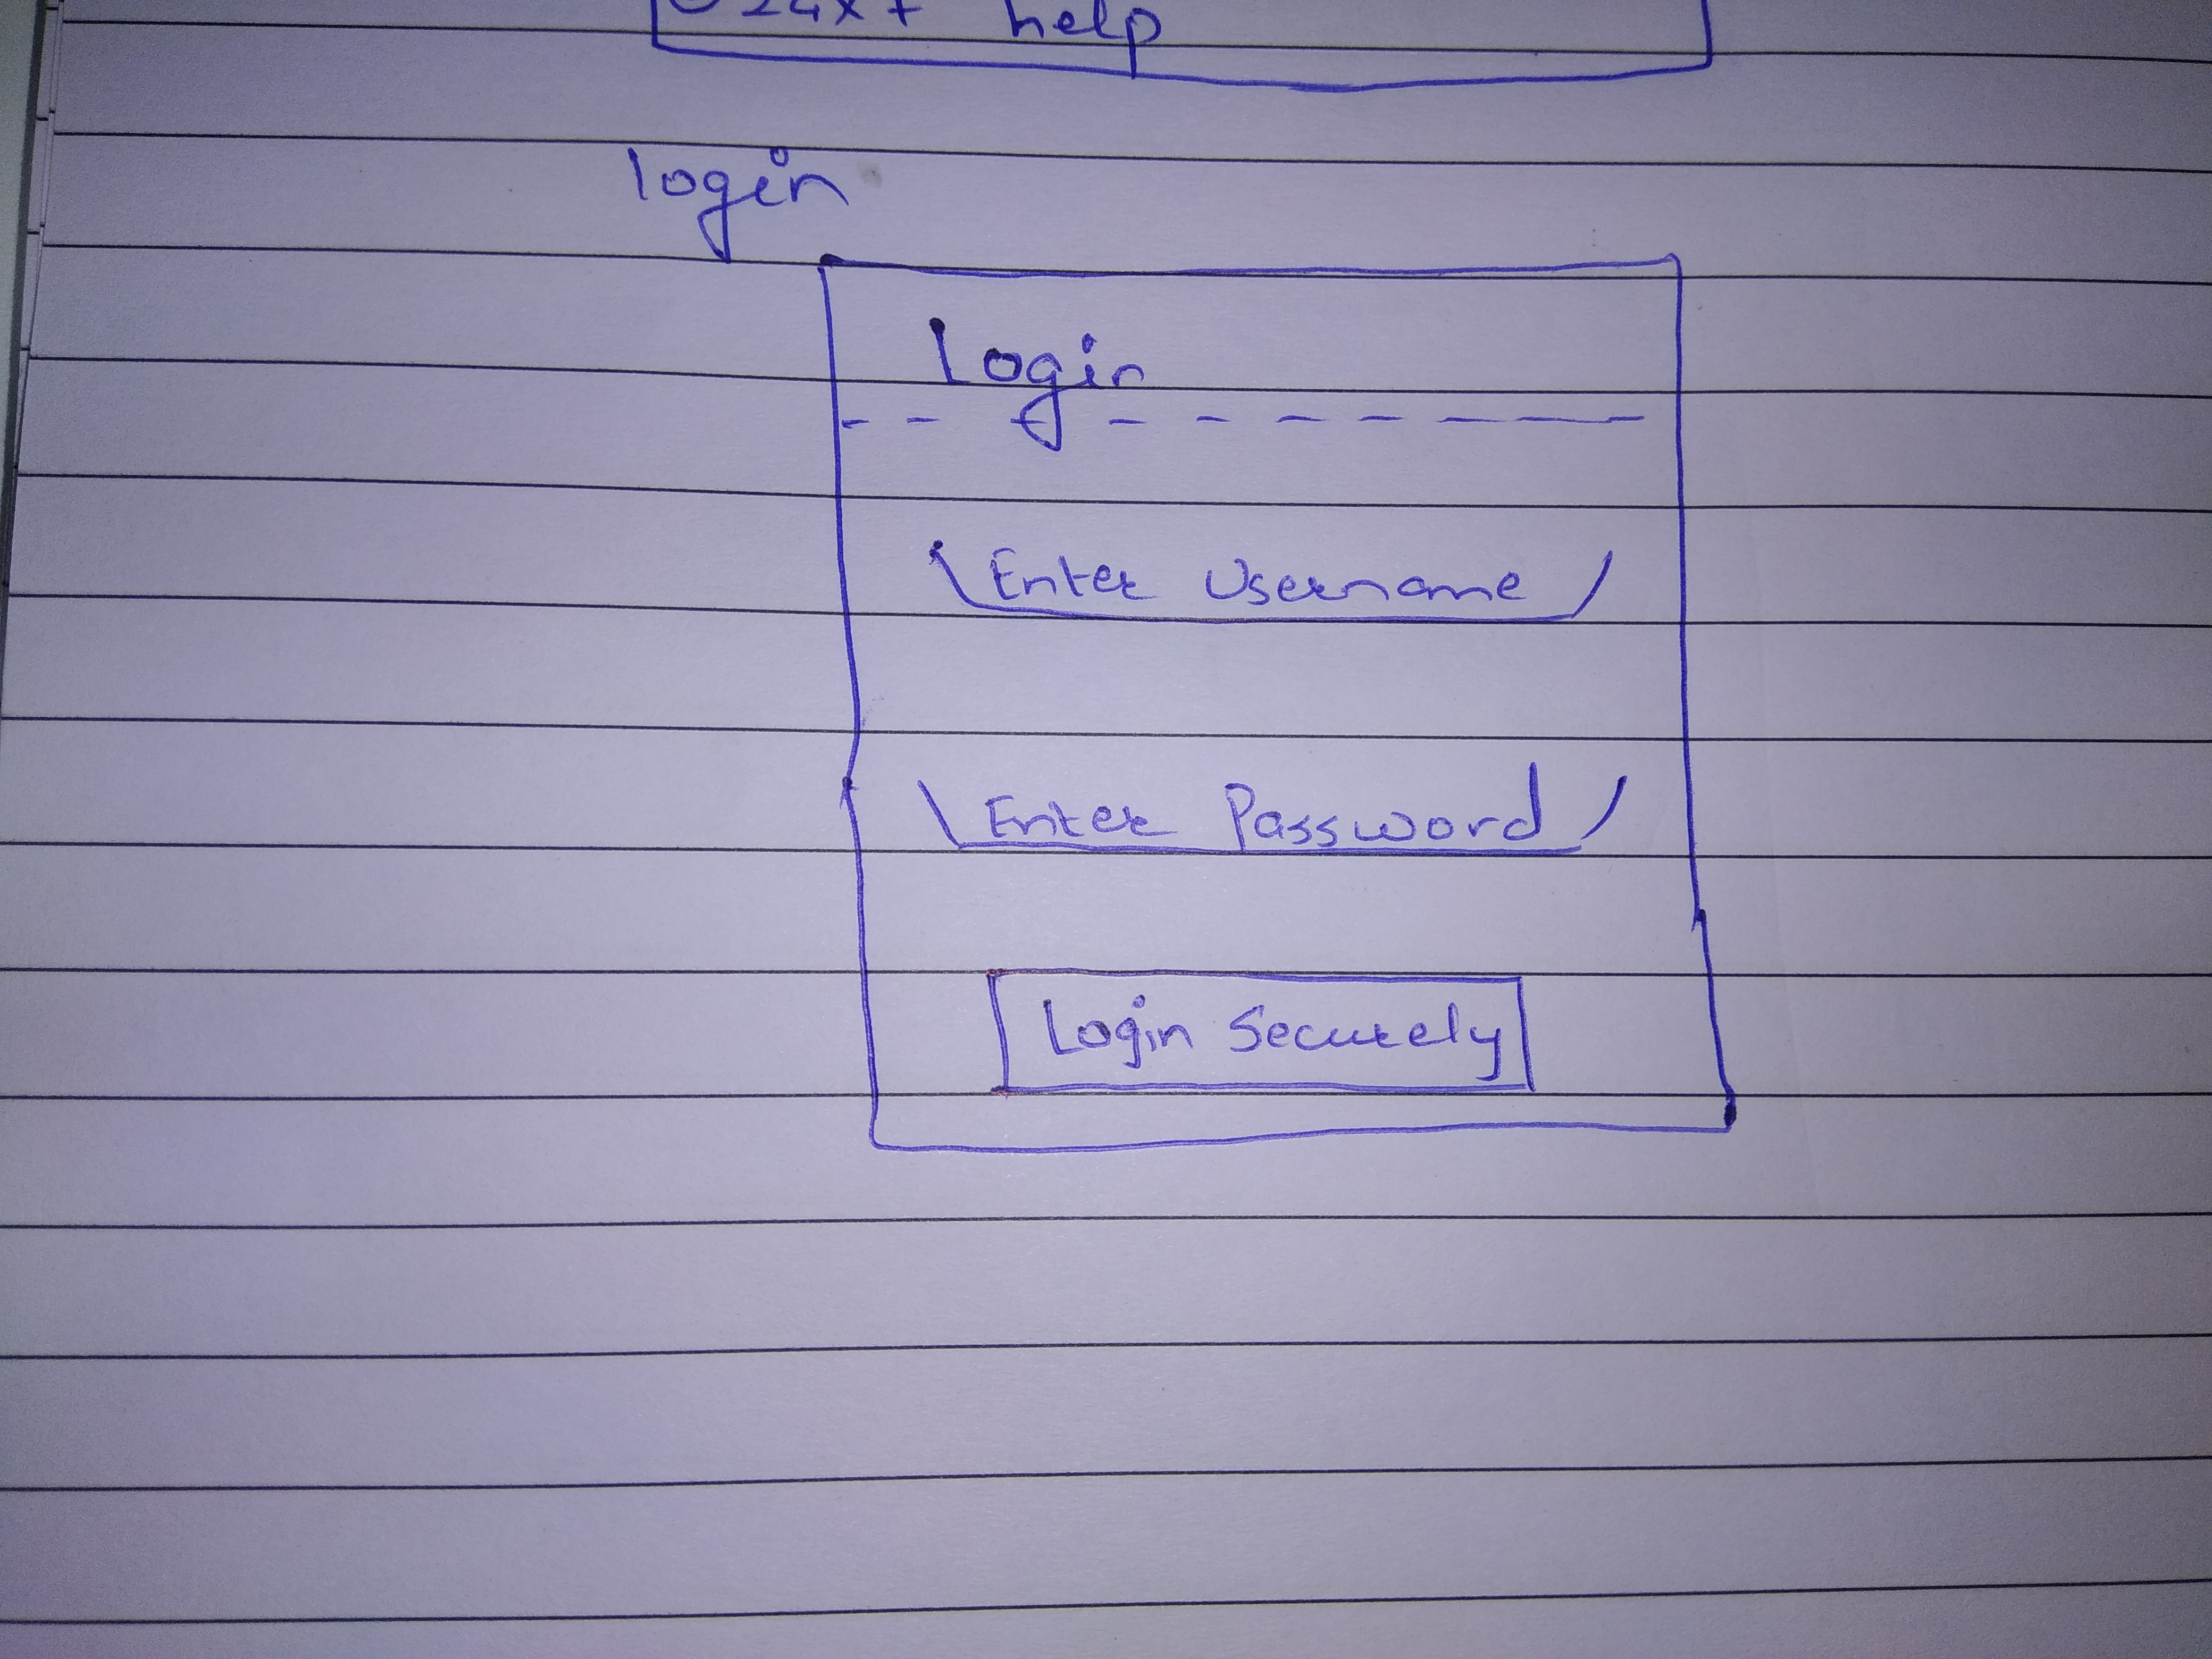 24x7 help
login
Login
Enter Username
Enter Password
Login Securely